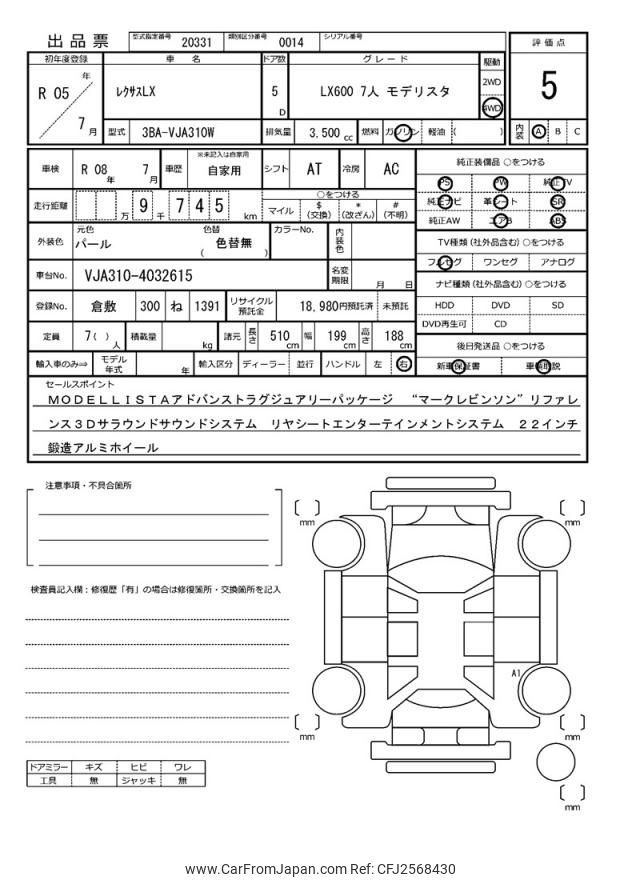 出品票
型式指定番号 20331 類別区分番号 0014 シリアル番号
評価点
5
内装 A B C
初年度登録 車名 ドア数 グレード 駆動
R 05 年 7 月
レクサスLX 5 D LX600 7人 モデリスタ 2WD 4WD
型式 3BA-VJA310W 排気量 3,500 cc 燃料 ガソリン 軽油 ( )
車検 R 08 年 7 月 車歴 ※未記入は自家用 自家用 シフト AT 冷房 AC
走行距離 万 9 千 7 4 5 km
○をつける
マイル $(交換) *(改ざん) #(不明)
外装色 元色 パール 色替 ( 色替無 ) カラーNo. 内装色
車台No. VJA310-4032615 名変期限 月 日
登録No. 倉敷 300 ね 1391 リサイクル預託金 18,980円預託済 未預託
定員 7( ) 人 積載量 kg 諸元 長さ 510 cm 幅 199 cm 高さ 188 cm
輸入車のみ⇒ モデル年式 年 輸入区分 ディーラー 並行 ハンドル 左 右
純正装備品 ○をつける
PS PW 純正TV
純正ナビ 革シート SR
純正AW エアB ABS
TV種類(社外品含む)○をつける
フルセグ ワンセグ アナログ
ナビ種類(社外品含む)○をつける
HDD DVD SD
DVD再生可 CD
後日発送品 ○をつける
新車保証書 車輌取説
セールスポイント
MODELLISTAアドバンストラグジュアリーパッケージ “マークレビンソン”リファレ
ンス3Dサラウンドサウンドシステム リヤシートエンターテインメントシステム 22インチ
鍛造アルミホイール
注意事項・不具合箇所
検査員記入欄：修復歴「有」の場合は修復箇所・交換箇所を記入
[ ] mm
[ ] mm
A1
[ ] mm
[ ] mm
[ ] mm
ドアミラー キズ ヒビ ワレ
工具 無 ジャッキ 無
www.CarFromJapan.com Ref: CFJ2568430